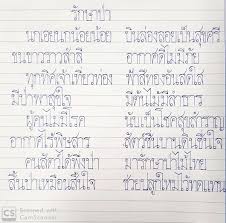 รักษาป่า
นกเอยนกน้อยน้อย บินล่องลอยเป็นสุขศรี
ขนขาวราวสำลี อากาศดีไม่มีภัย
ทุกทิศเจ้าเที่ยวท่อง ฟ้าสีทองอันสดใส
มีป่าพาสุขใจ มีต้นไม้มีลำธาร
ผู้คนไม่มีโรค นับเป็นโชคสุขสำราญ
อากาศไร้พิษสาร สัตว์ชื่นบานดินชื่นใจ
คนสัตว์ได้พึ่งป่า มารักษาป่าไม้ไทย
สิ้นป่าเหมือนสิ้นใจ ช่วยปลูกใหม่ไว้ทดแทน
CS Scanned with
CamScanner